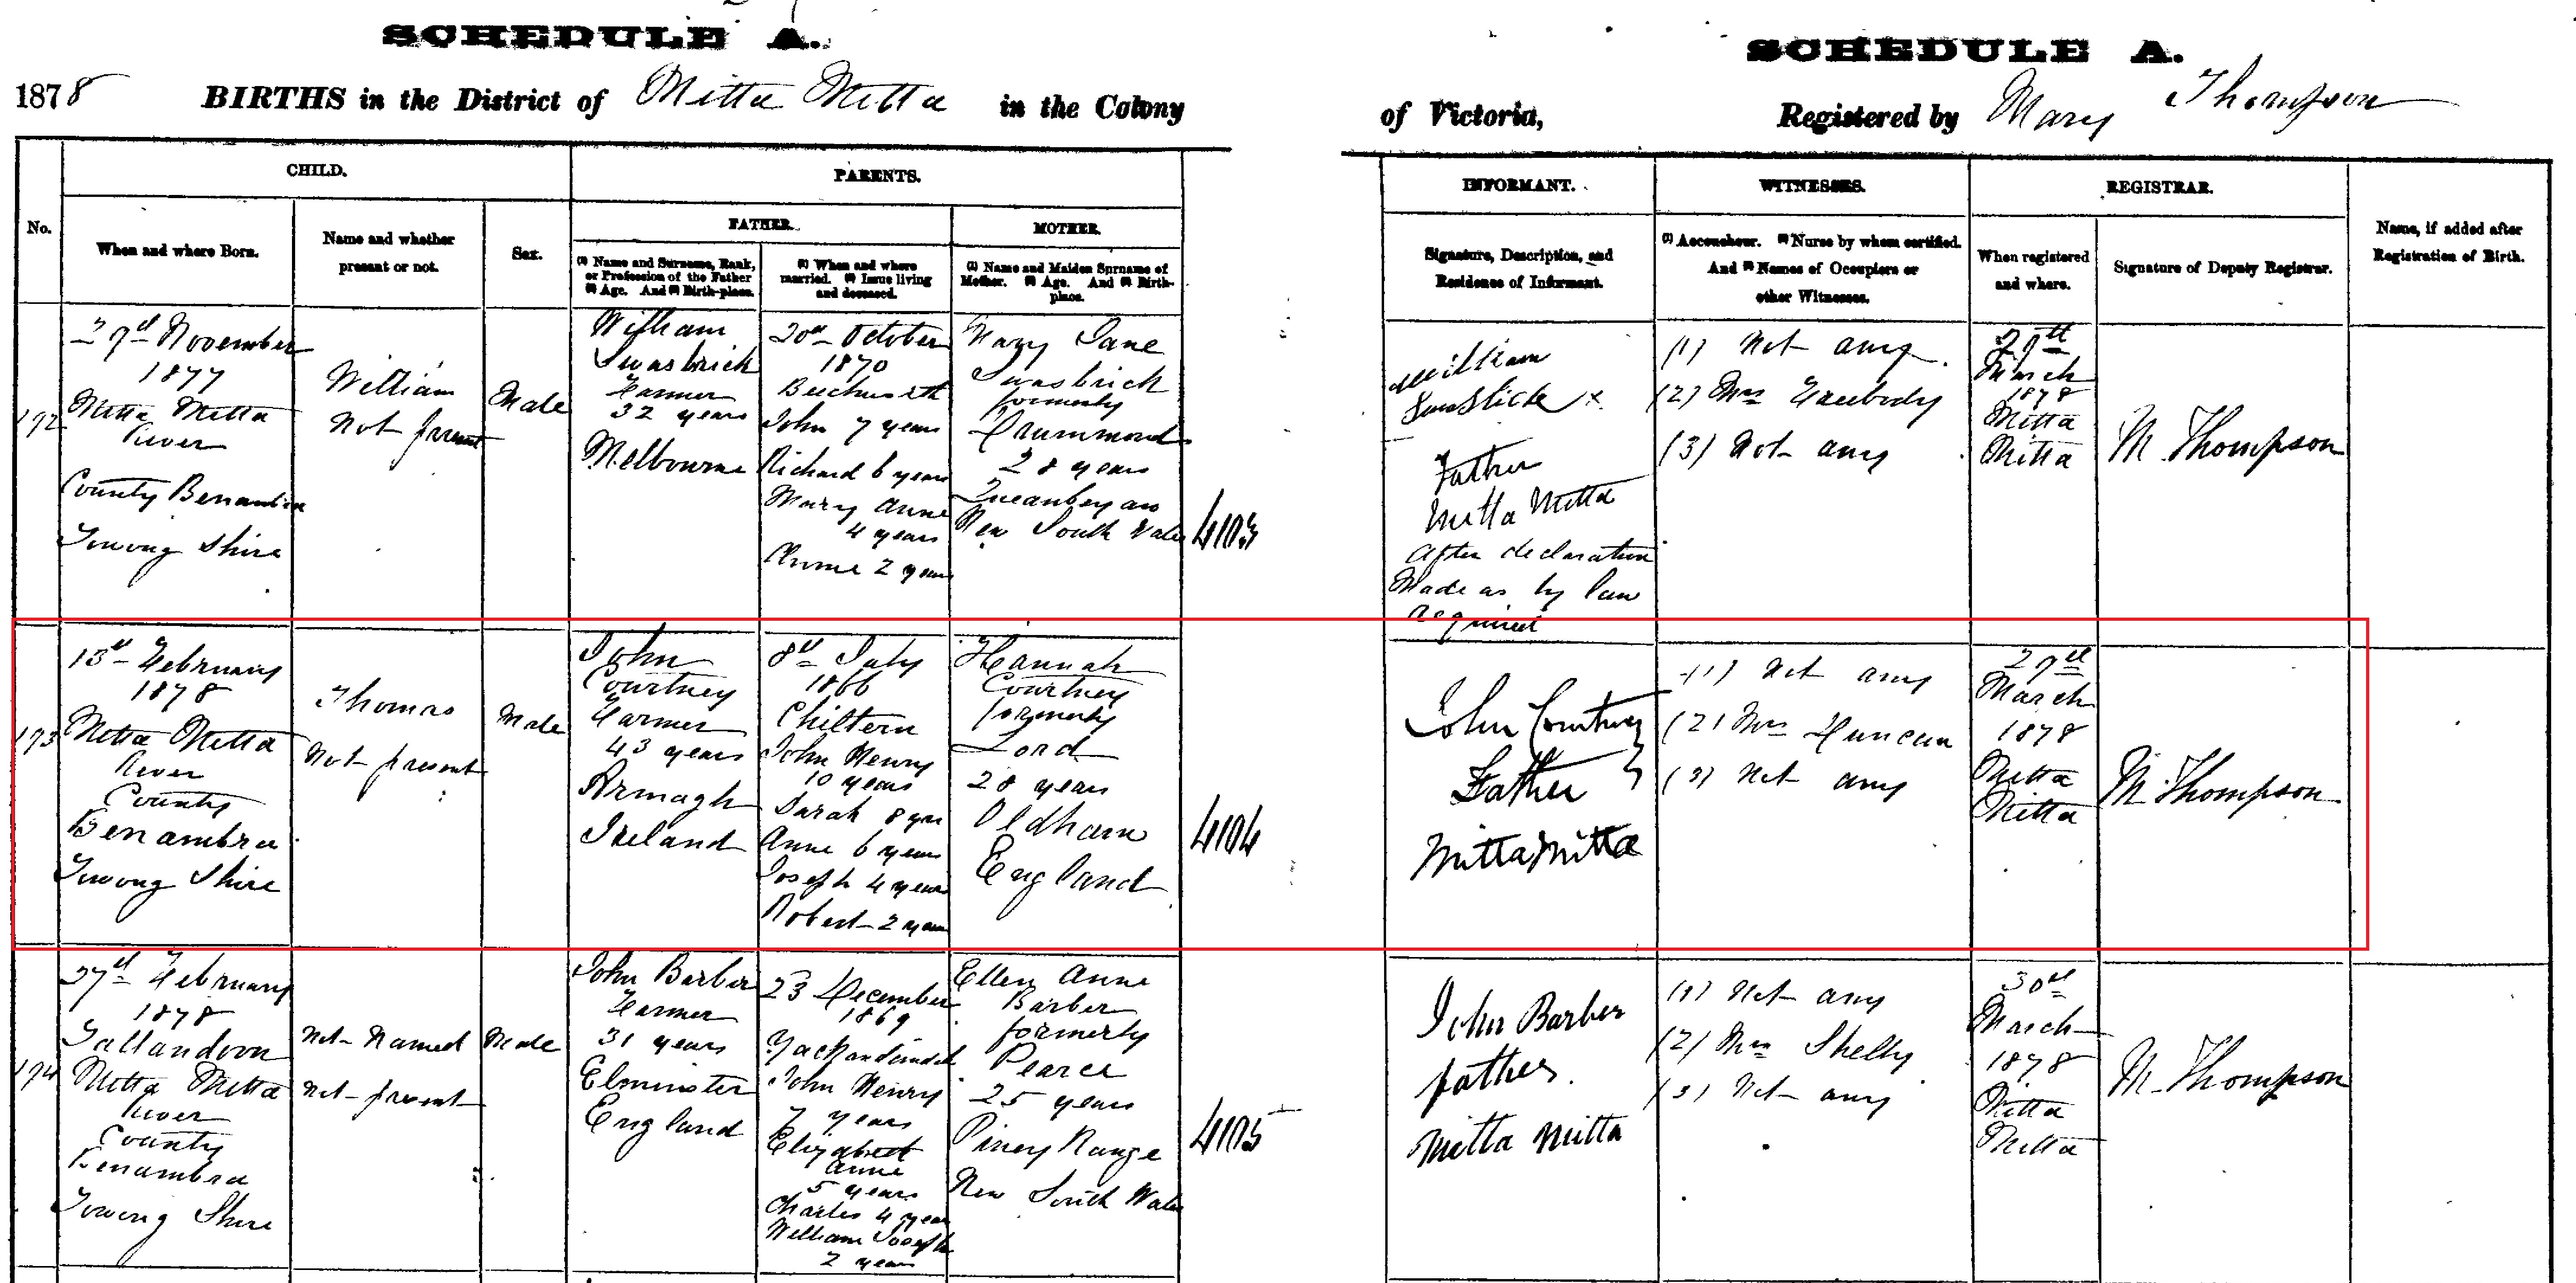 SCHEDULE A.
1878 BIRTHS in the District of Mitta Mitta in the Colony
SCHEDULE A.
of Victoria, Registered by Mary Thompson
No.
CHILD.
When and where Born.
Name and whether
present or not.
Sex.
PARENTS.
FATHER.
(1) Name and Surname, Rank,
or Profession of the Father
(2) Age. And (3) Birth-place.
(1) When and where
married. (2) Issue living
and deceased.
MOTHER.
(1) Name and Maiden Surname of
Mother. (2) Age. And (3) Birth-
place.
INFORMANT.
Signature, Description, and
Residence of Informant.
WITNESSES.
(1) Accoucheur. (2) Nurse by whom certified.
And (3) Names of Occupiers or
other Witnesses.
REGISTRAR.
When registered
and where.
Signature of Deputy Registrar.
Name, if added after
Registration of Birth.
192
November
1877
Mitta Mitta
River
County Benambra
Towong Shire
William
Not present
Male
William
Swasbrick
Farmer
32 years
Melbourne
20th October
1870
Beechworth
John 7 years
Richard 6 years
Mary Anne
4 years
2 years
Mary Jane
Swasbrick
formerly
Drummond
28 years
Queanbeyan
New South Wales
4103
William
x
Father
Mitta Mitta
After declaration
Made as by law
required
(1) Not any
(2) Mrs
(3) Not any
March
1878
Mitta
Mitta
M Thompson
193
13th February
1878
Mitta Mitta
River
County
Benambra
Towong Shire
Thomas
Not present
Male
John
Courtney
Farmer
43 years
Armagh
Ireland
8th July
1866
Chiltern
John Henry
10 years
Sarah 8 yrs
Anne 6 years
Joseph 4 years
Robert 2 years
Hannah
Courtney
formerly
Lord
28 years
Oldham
England
4104
John Courtney
Father
Mitta Mitta
(1) Not any
(2) Mrs Duncan
(3) Not any
March
1878
Mitta
Mitta
M. Thompson
194
27th February
1878
Tallandoon
Mitta Mitta
River
County
Benambra
Towong Shire
Not Named
Not present
Male
John Barber
Farmer
31 years
Elminster
England
23 December
1869
Yackandandah
John Henry
7 years
Elizabeth
Anne
5 years
Charles 4 years
William Joseph
2 years
Ellen Anne
Barber
formerly
Pearce
25 years
Piney Range
New South Wales
4105
John Barber
father
Mitta Mitta
(1) Not any
(2) Mrs Shelly
(3) Not any
30th
March
1878
Mitta
Mitta
M. Thompson